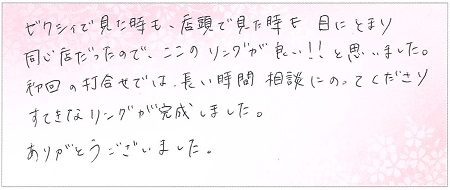 ゼクシィで見た時も、店頭で見た時も 目にとまり
同じ店だったので、ここのリングが良い!!と思いました。
初回の打合せでは、長い時間 相談にのってくださり
すてきなリングが完成しました。
ありがとうございました。